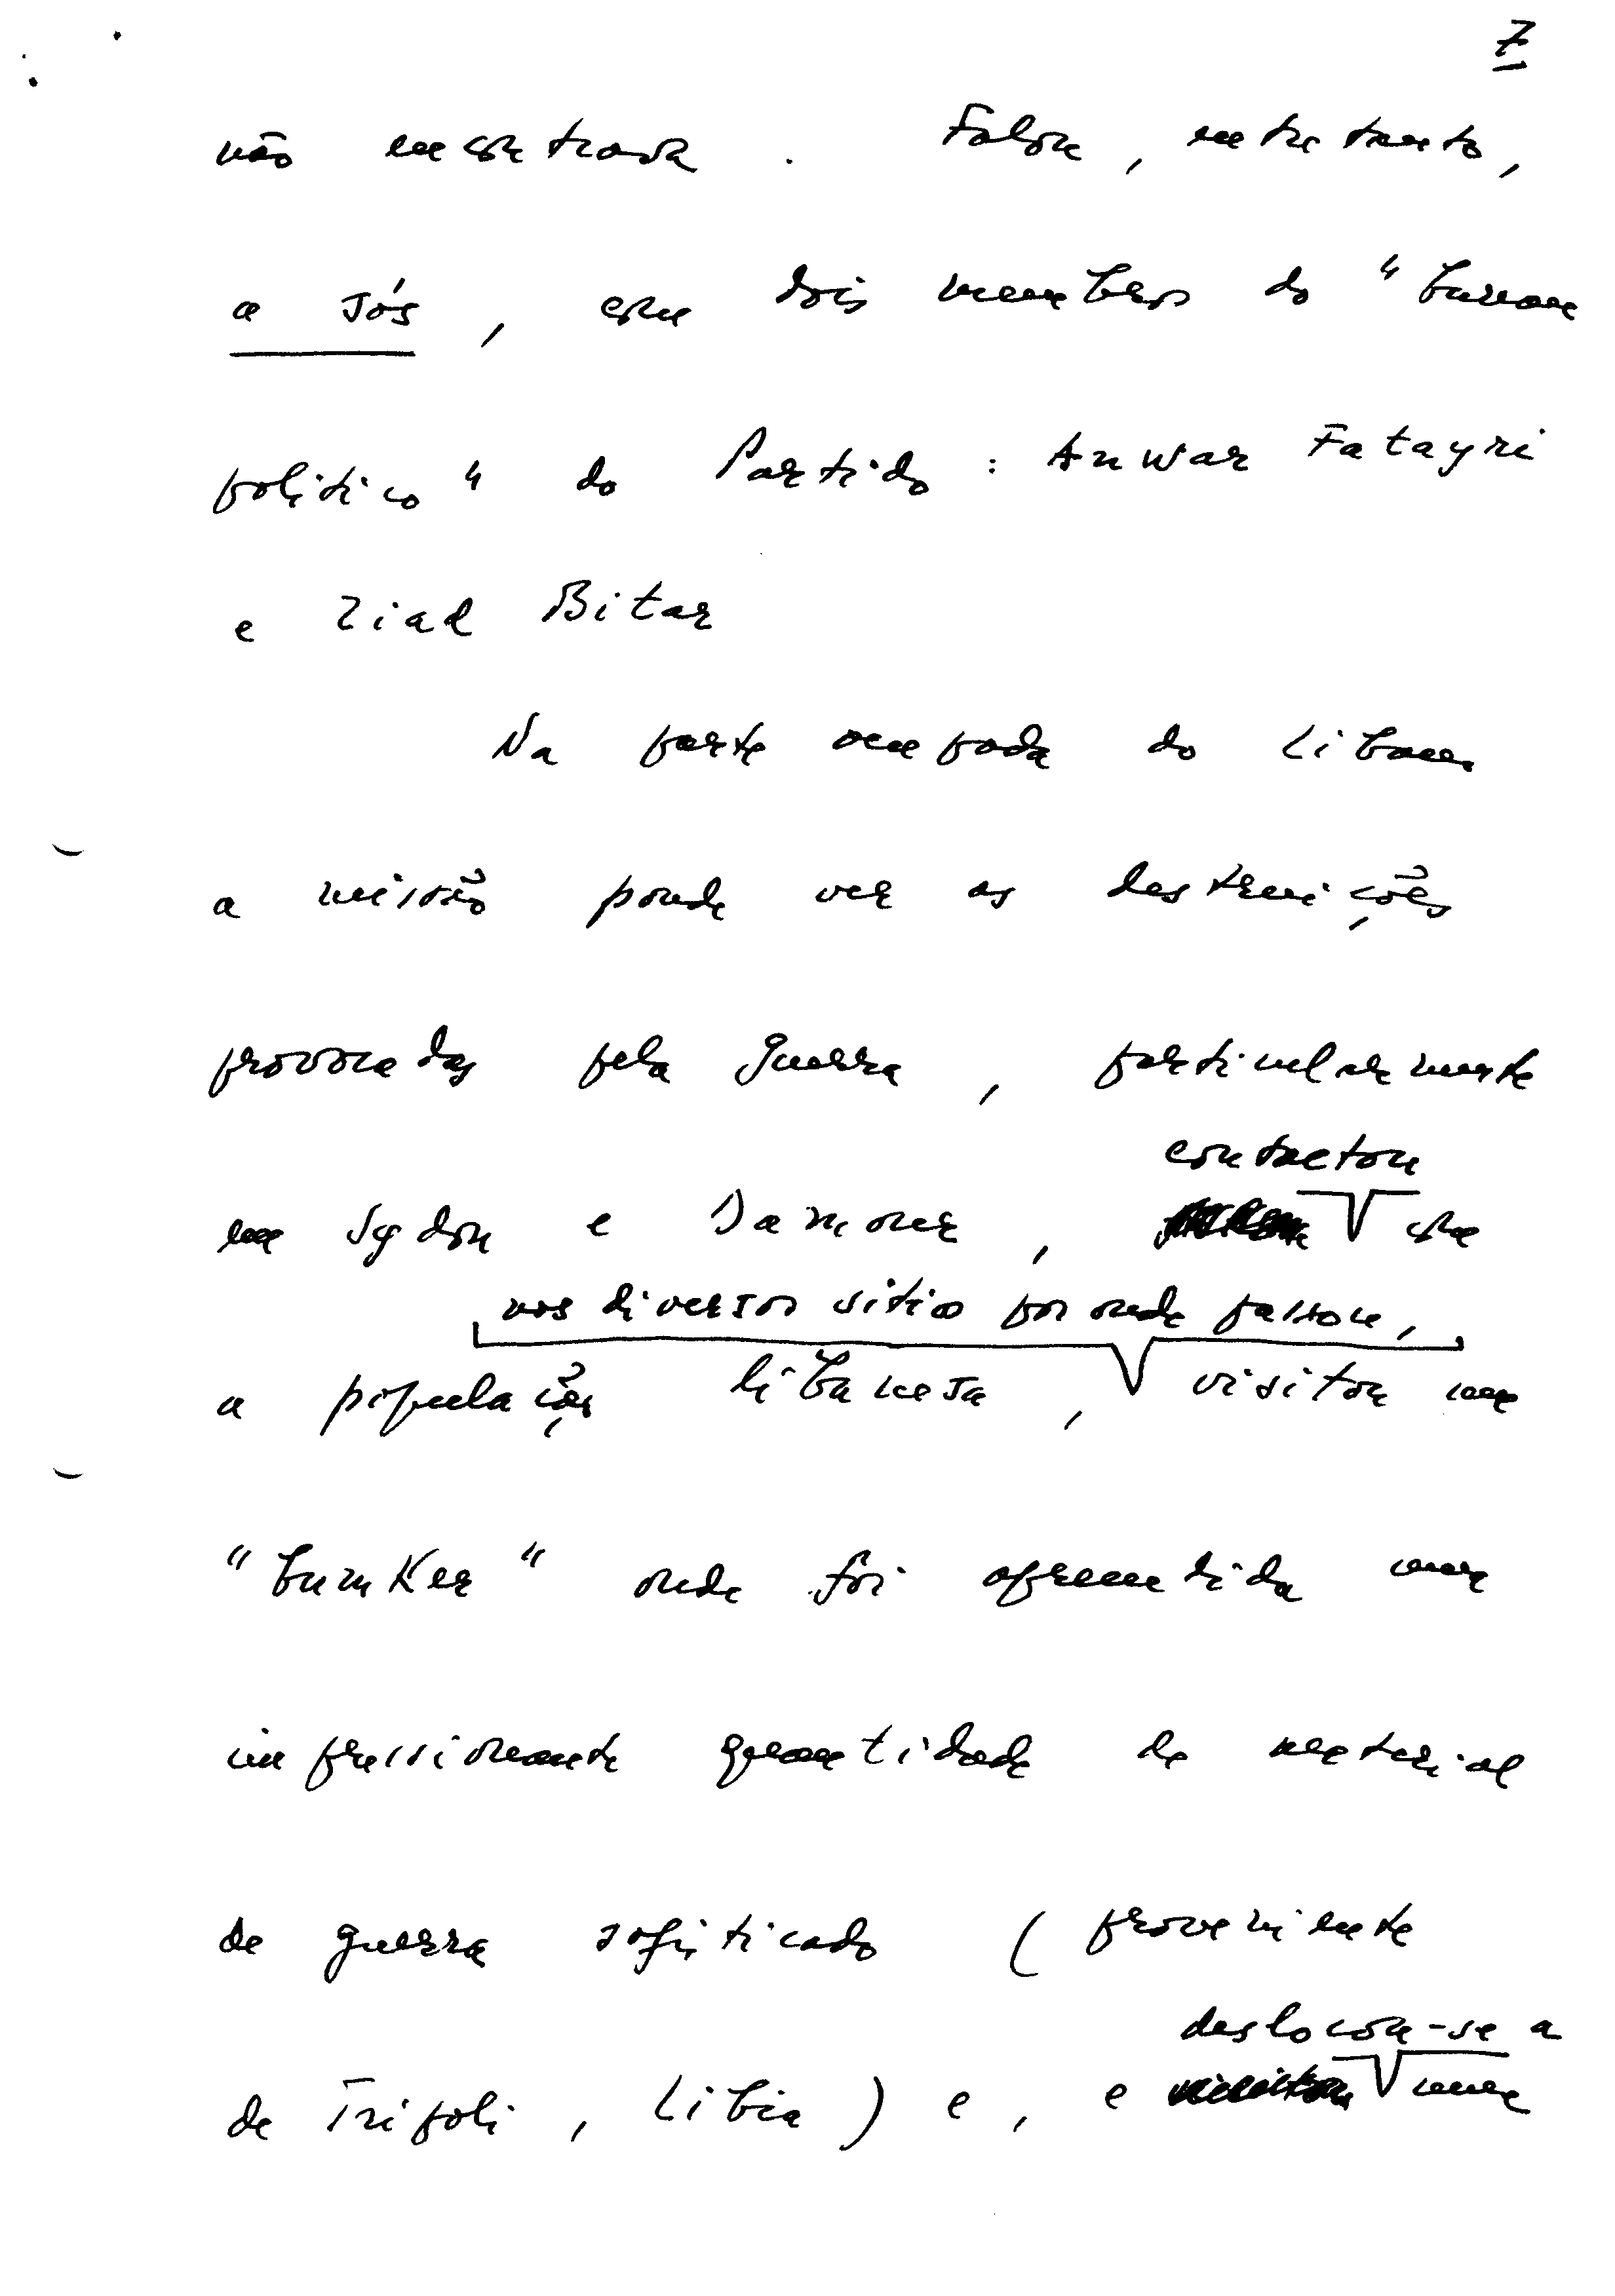 7
não encontrava. Falou, entretanto,
a sós, com dois membros do "bureau
politico" do Partido: Anwar Fatayri
e Ziad Bitar
Na parte ocupada do Libano
a missão poude ver as destruições
provocadas pela guerra, particularmente
contactou
em Sydon e Damour, com
nos diversos sitios por onde passou,
a população libanesa, visitou um
"bunker" onde foi apreendida uma
impressionante quantidade de material
de guerra sofisticado (proveniente
deslocou-se a
de Tripoli, Libia) e, e uma